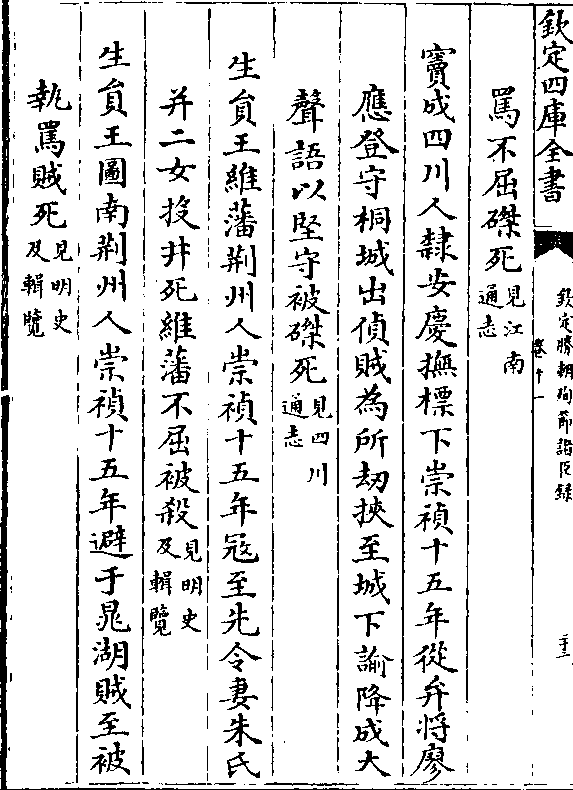 欽定四庫全書
欽定勝朝殉節諸臣錄
卷十一
罵不屈磔死見江南通志
竇成四川人隸安慶撫標下崇禎十五年從弁將廖
應登守桐城出偵賊為所劫挾至城下諭降成大
聲語以堅守被磔死見四川通志
生員王維藩荆州人崇禎十五年冦至先令妻朱氏
并二女投井死維藩不屈被殺見明史及輯覽
生員王圖南荆州人崇禎十五年避于晁湖賊至被
執罵賊死見明史及輯覽